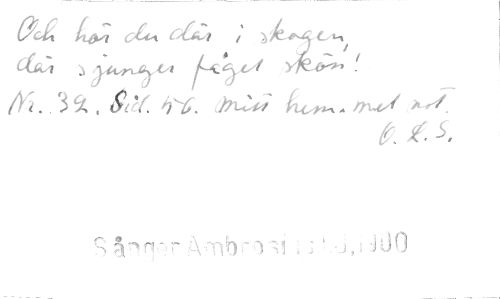 Och hör du där i skogen,
där sjunger fågel skön!
Nr. 32. Sid. 46. Mitt hem. med not.
O. L. S.
Sånger Ambrosi 1900